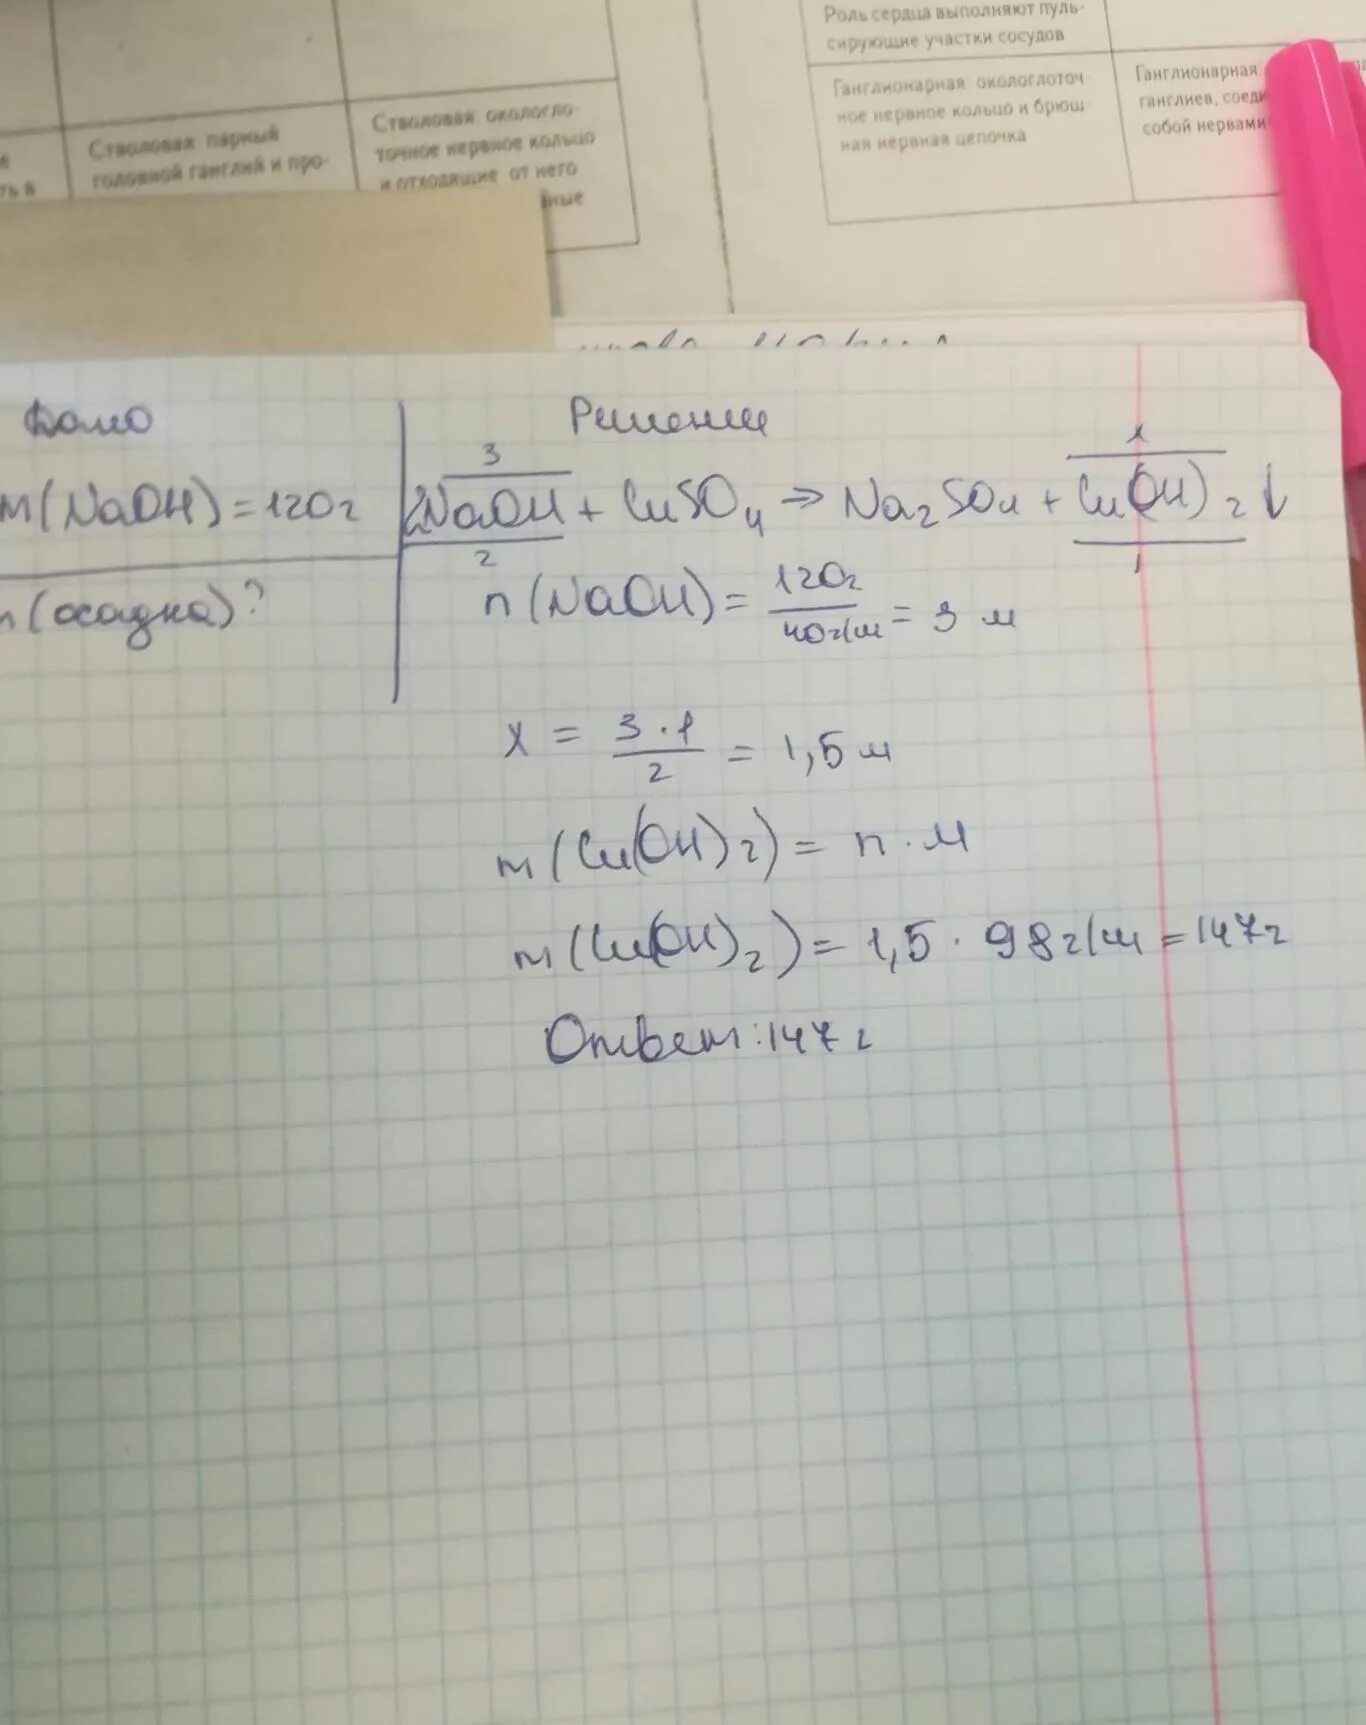 Роль сердца выполняют пуль-
сирующие участки сосудов
Ганглионарная окологлоточ-
ное нервное кольцо и брюш-
ная нервная цепочка
Ганглионарная
ганглиев, соеди
собой нервами
Стволовая парный
головной ганглий и про-
Стволовая окологло-
точное нервное кольцо
и отходящие от него
ные
ть в
Дано
m(NaOH)=120г
(осадка)?
Решение
3 x
2NaOH + CuSO4 → Na2SO4 + Cu(OH)2↓
2 1
n(NaOH) = 120г / 40г/м = 3 м
x = 3·1 / 2 = 1,5 м
m(Cu(OH)2) = n·M
m(Cu(OH)2) = 1,5·98г/м = 147г
Ответ: 147г